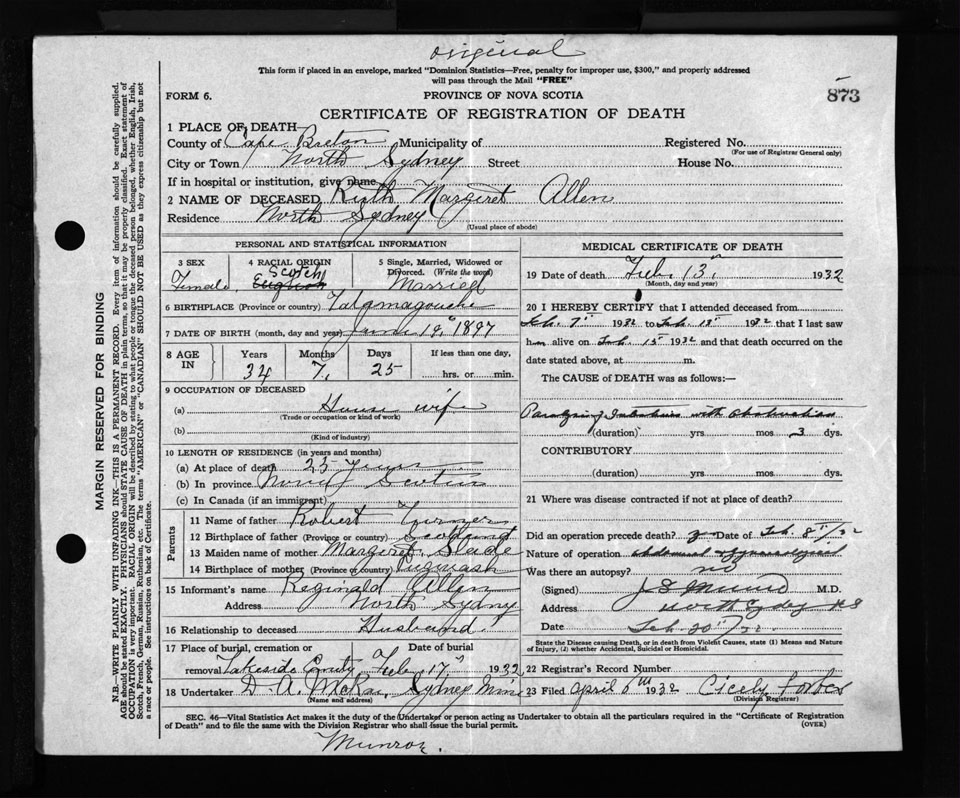 original
This form if placed in an envelope, marked "Dominion Statistics—Free, penalty for improper use, $300," and properly addressed
will pass through the Mail "FREE"
FORM 6.
PROVINCE OF NOVA SCOTIA
873
CERTIFICATE OF REGISTRATION OF DEATH
1 PLACE OF DEATH—
County of Cape Breton Municipality of Registered No.
(For use of Registrar General only)
City or Town North Sydney Street House No.
If in hospital or institution, give name
2 NAME OF DECEASED Ruth Margaret Allen
Residence North Sydney
(Usual place of abode)
PERSONAL AND STATISTICAL INFORMATION
3 SEX 4 RACIAL ORIGIN 5 Single, Married, Widowed or
Divorced. (Write the word)
Female Scotch English Married
6 BIRTHPLACE (Province or country) Tatamagouche
7 DATE OF BIRTH (month, day and year) June 19, 1897
8 AGE IN Years Months Days If less than one day,
34 7 25 hrs. or min.
9 OCCUPATION OF DECEASED
(a) House wife
(Trade or occupation or kind of work)
(b)
(Kind of industry)
10 LENGTH OF RESIDENCE (in years and months)
(a) At place of death 25 years
(b) In province Nova Scotia
(c) In Canada (if an immigrant)
Parents
11 Name of father Robert Turner
12 Birthplace of father (Province or country) Scotland
13 Maiden name of mother Margaret Slade
14 Birthplace of mother (Province or country) Pugwash
15 Informant's name Reginald Allen
Address North Sydney
16 Relationship to deceased Husband
17 Place of burial, cremation or Date of burial
removal Lakeside Cemty Feb 17" 1932
18 Undertaker D. A. McRae Sydney Mines
(Name and address)
MEDICAL CERTIFICATE OF DEATH
19 Date of death Feb. 13, 1932
(Month, day and year)
20 I HEREBY CERTIFY that I attended deceased from
Feb. 7 1932 to Feb. 13 1932 that I last saw
h alive on Feb 13 1932 and that death occurred on the
date stated above, at m.
The CAUSE of DEATH was as follows:—
with Obstruction
(duration) yrs mos 3 dys.
CONTRIBUTORY
(duration) yrs mos dys.
21 Where was disease contracted if not at place of death?
Did an operation precede death? Date of Feb. 8
Nature of operation
Was there an autopsy? no
(Signed) M.D.
Address North Sydney N S
Date Feb. 20
State the Disease causing Death, or in death from Violent Causes, state (1) Means and Nature
of Injury, (2) whether Accidental, Suicidal or Homicidal.
22 Registrar's Record Number
23 Filed April 1932 Cicely Forbes
(Division Registrar)
SEC. 46—Vital Statistics Act makes it the duty of the Undertaker or person acting as Undertaker to obtain all the particulars required in the "Certificate of Registration
of Death" and to file the same with the Division Registrar who shall issue the burial permit. (OVER)
Munroe.
MARGIN RESERVED FOR BINDING
N.B.—WRITE PLAINLY WITH UNFADING INK—THIS IS A PERMANENT RECORD. Every item of information should be carefully supplied.
AGE should be stated EXACTLY. PHYSICIANS should STATE CAUSE OF DEATH in plain terms, so that it may be properly classified. Exact statement of
OCCUPATION is very important. RACIAL ORIGIN will be described by stating to what people or tongue the deceased person belonged, whether English, Irish,
Scotch, French, German, Russian, Ruthenian, etc. The terms "AMERICAN" or "CANADIAN" SHOULD NOT BE USED as they express citizenship but not
a race or people. See instructions on back of Certificate.